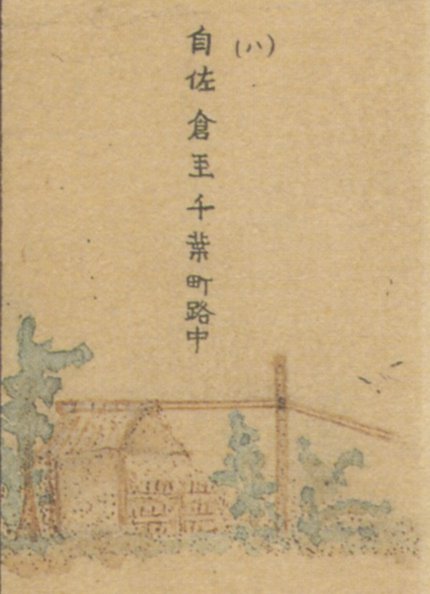 (八)
自佐倉至千葉町路中